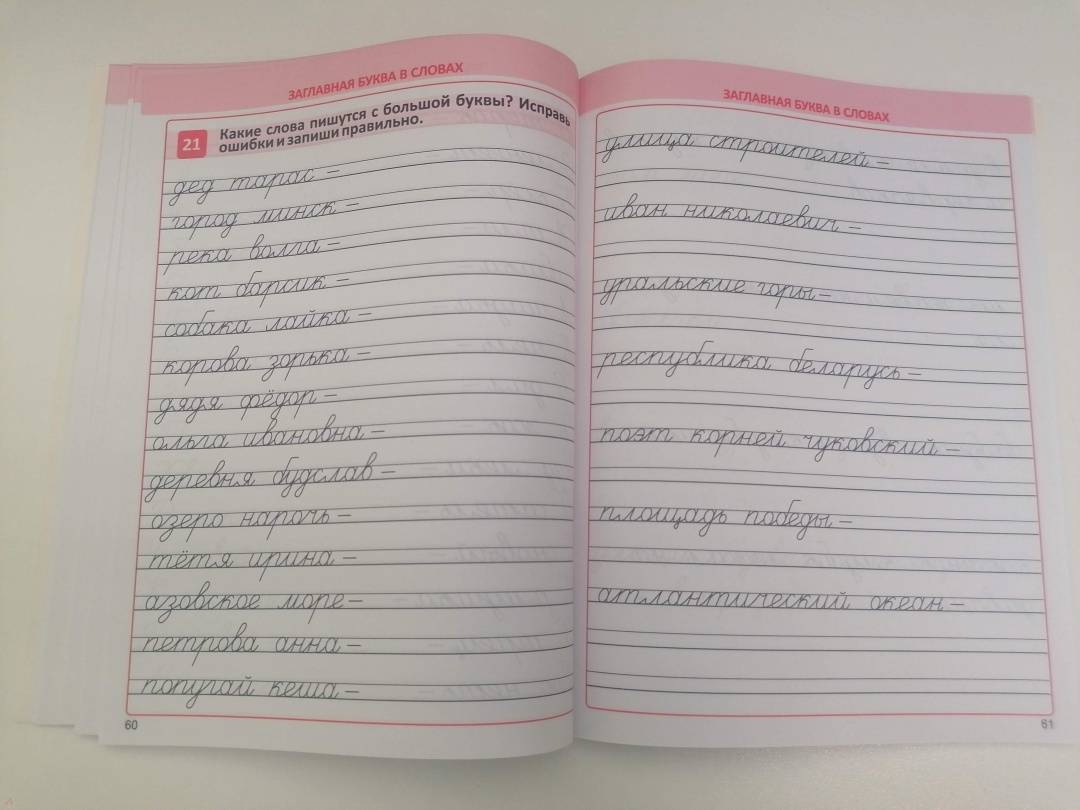 ЗАГЛАВНАЯ БУКВА В СЛОВАХ
21
Какие слова пишутся с большой буквы? Исправь
ошибки и запиши правильно.
дед тарас –
город минск –
река волга –
кот барсик –
собака лайка –
корова зорька –
дядя фёдор –
ольга ивановна –
деревня будслав –
озеро нарочь –
тётя ирина –
азовское море –
петрова анна –
попугай кеша –
60
ЗАГЛАВНАЯ БУКВА В СЛОВАХ
улица строителей –
иван николаевич –
уральские горы –
республика беларусь –
поэт корней чуковский –
площадь победы –
атлантический океан –
61